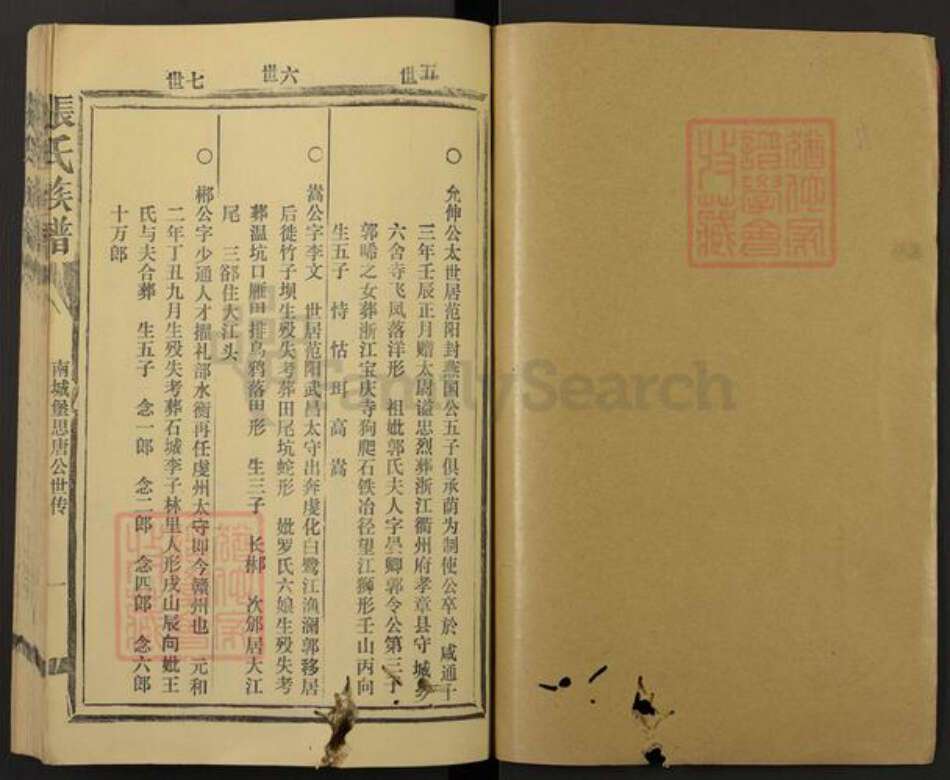 五世
六世
七世
○ 允伸公太世居范阳封燕国公五子俱承荫为制使公卒於 咸通十
三年壬辰正月赠太尉谥忠烈葬浙江衢州府孝章县守城乡
六舍寺飞凤落洋形 祖妣郭氏夫人字昙卿郭令公第三子
郭晞之女葬浙江宝庆寺狗爬石铁冶径望江狮形壬山丙向
生五子 恃 怙 珂 高 嵩
○ 嵩公字李文 世居范阳武昌太守出奔虔化白鹭江渔澜郭移居
后徙竹子坝生殁失考葬田尾坑蛇形 妣罗氏六娘生殁失考
葬温坑口雁田排乌鸦落田形 生三子 长郴 次郧居大江
尾 三郤住大江头
○ 郴公字少通人才擢礼部水衡再任虔州太守即今赣州也 元和
二年丁丑九月生殁失考葬石城李子林里人形戌山辰向妣王
氏与夫合葬 生五子 念一郎 念二郎 念四郎 念六郎
十万郎
張氏族譜
南城堡思唐公世传
一
FamilySearch